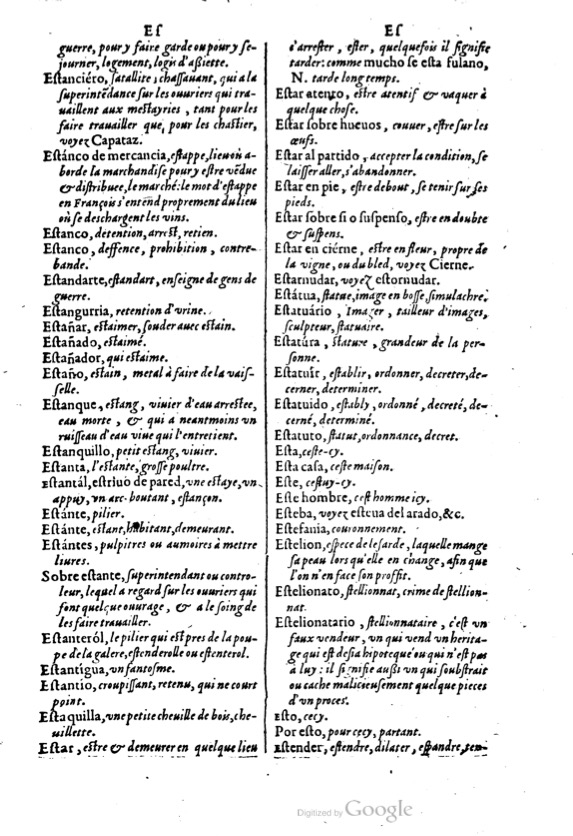 Eſ
guerre, pour y faire garde ou pour y ſe-
journer, logement, logis d'aßiette.
Eſtanciéro, ſatallite, chaſſauant, qui a la
ſuperintēdance ſur les ouuriers qui tra-
uaillent aux meſtayries, tant pour les
faire trauailler que, pour les chaſtier,
voyez Capataz.
Eſtánco de mercancia, eſtappe, lieu où a-
borde la marchandiſe pour y eſtre vēdue
& diſtribuee, le marché: le mot d'eſtappe
en François s'entend proprement du lieu
où ſe deschargent les vins.
Eſtanco, detention, arreſt, retien.
Eſtanco, deffence, prohibition, contre-
bande.
Eſtandarte, eſtandart, enſeigne de gens de
guerre.
Eſtangurria, retention d'vrine.
Eſtañar, eſtaimer, ſouder auec eſtain.
Eſtañado, eſtaimé.
Eſtañador, qui eſtaime.
Eſtaño, eſtain, metal à faire de la vaiſ-
ſelle.
Eſtanque, eſtang, viuier d'eau arreſtee,
eau morte, & qui a neantmoins vn
ruiſſeau d'eau viue qui l'entretient.
Eſtanquillo, petit eſtang, viuier.
Eſtanta, l'eſtante, groſſe poultre.
Eſtantál, eſtriuo de pared, vne eſtaye, vn
appuy, vn arc-boutant, eſtançon.
Eſtánte, pilier.
Eſtánte, eſtant, habitant, demeurant.
Eſtántes, pulpitres ou aumoires à mettre
liures.
Sobre eſtante, ſuperintendant ou contro-
leur, lequel a regard ſur les ouuriers qui
font quelque ouurage, & a le ſoing de
les faire trauailler.
Eſtanteról, le pilier qui eſt pres de la pou-
pe de la galere, eſtenderolle ou eſtenterol.
Eſtantígua, vn fantoſme.
Eſtantio, croupiſſant, retenu, qui ne court
point.
Eſtaquilla, vne petite cheuille de bois, che-
uillette.
Eſtar, eſtre & demeurer en quelque lieu
Eſ
s'arreſter, eſter, quelquefois il ſignifie
tarder: comme mucho se eſta fulano,
N. tarde long temps.
Eſtar atento, eſtre atentif & vaquer à
quelque choſe.
Eſtar ſobre hueuos, couuer, eſtre ſur les
œufs.
Eſtar al partido, accepter la condition, ſe
laiſſer aller, s'abandonner.
Eſtar en pie, eſtre debout, ſe tenir ſur ſes
pieds.
Eſtar ſobre ſi o ſuſpenſo, eſtre en doubte
& ſuſpens.
Eſtar en ciérne, eſtre en fleur, propre de
la vigne, ou du bled, voyez Cierne.
Eſtarnudar, voyez eſtornudar.
Eſtátua, ſtatue, image en boſſe, ſimulachre.
Eſtatuário, Imager, tailleur d'images,
ſculpteur, ſtatuaire.
Eſtatúra, ſtature, grandeur de la per-
ſonne.
Eſtatuír, eſtablir, ordonner, decreter, de-
cerner, determiner.
Eſtatuido, eſtably, ordonné, decreté, de-
cerné, determiné.
Eſtatuto, ſtatut, ordonnance, decret.
Eſta, ceſte-cy.
Eſta caſa, ceſte maiſon.
Eſte, ceſtuy-cy.
Eſte hombre, ceſt homme icy.
Eſteba, voyez eſteua del arado, &c.
Eſtefania, couronnement.
Eſtelion, eſpece de leſarde, laquelle mange
ſa peau lors qu'elle en change, afin que
l'on n'en face ſon proffit.
Eſtelionato, ſtellionnat, crime de ſtellion-
nat.
Eſtelionatario, ſtellionnataire, c'eſt vn
faux vendeur, vn qui vend vn herita-
ge qui eſt deſia hipoteque ou qui n'eſt pas
à luy: il ſignifie außi vn qui ſouſtrait
ou cache malicieuſement quelque pieces
d'vn proces.
Eſto, cecy.
Por eſto, pour cecy, partant.
Eſtender, eſtendre, dilater, eſpandre, ten-
Digitized by Google